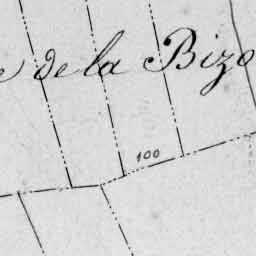 de la Bizo
100